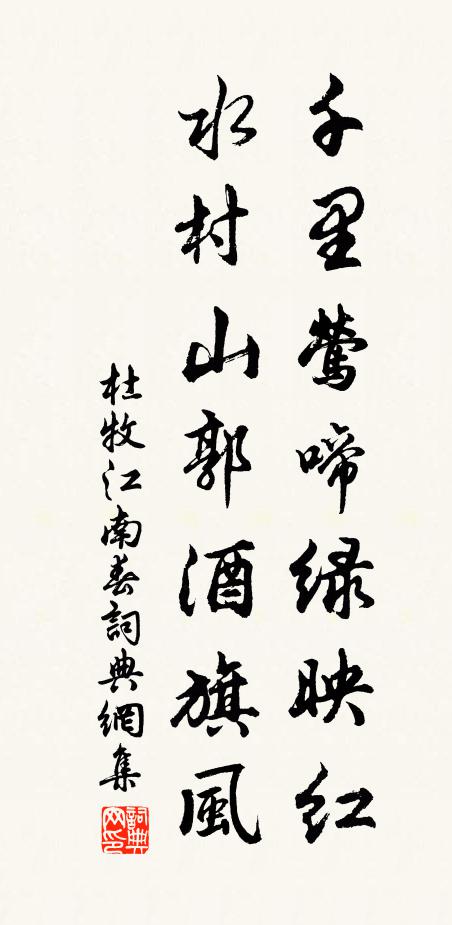 千里鶯啼绿映红
水村山郭酒旗風
杜牧江南春詞典網集
詞典网印